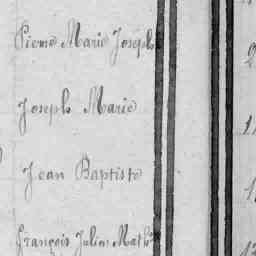 Pierre Marie Joseph
Joseph Marie
Jean Baptiste
François Julien Math